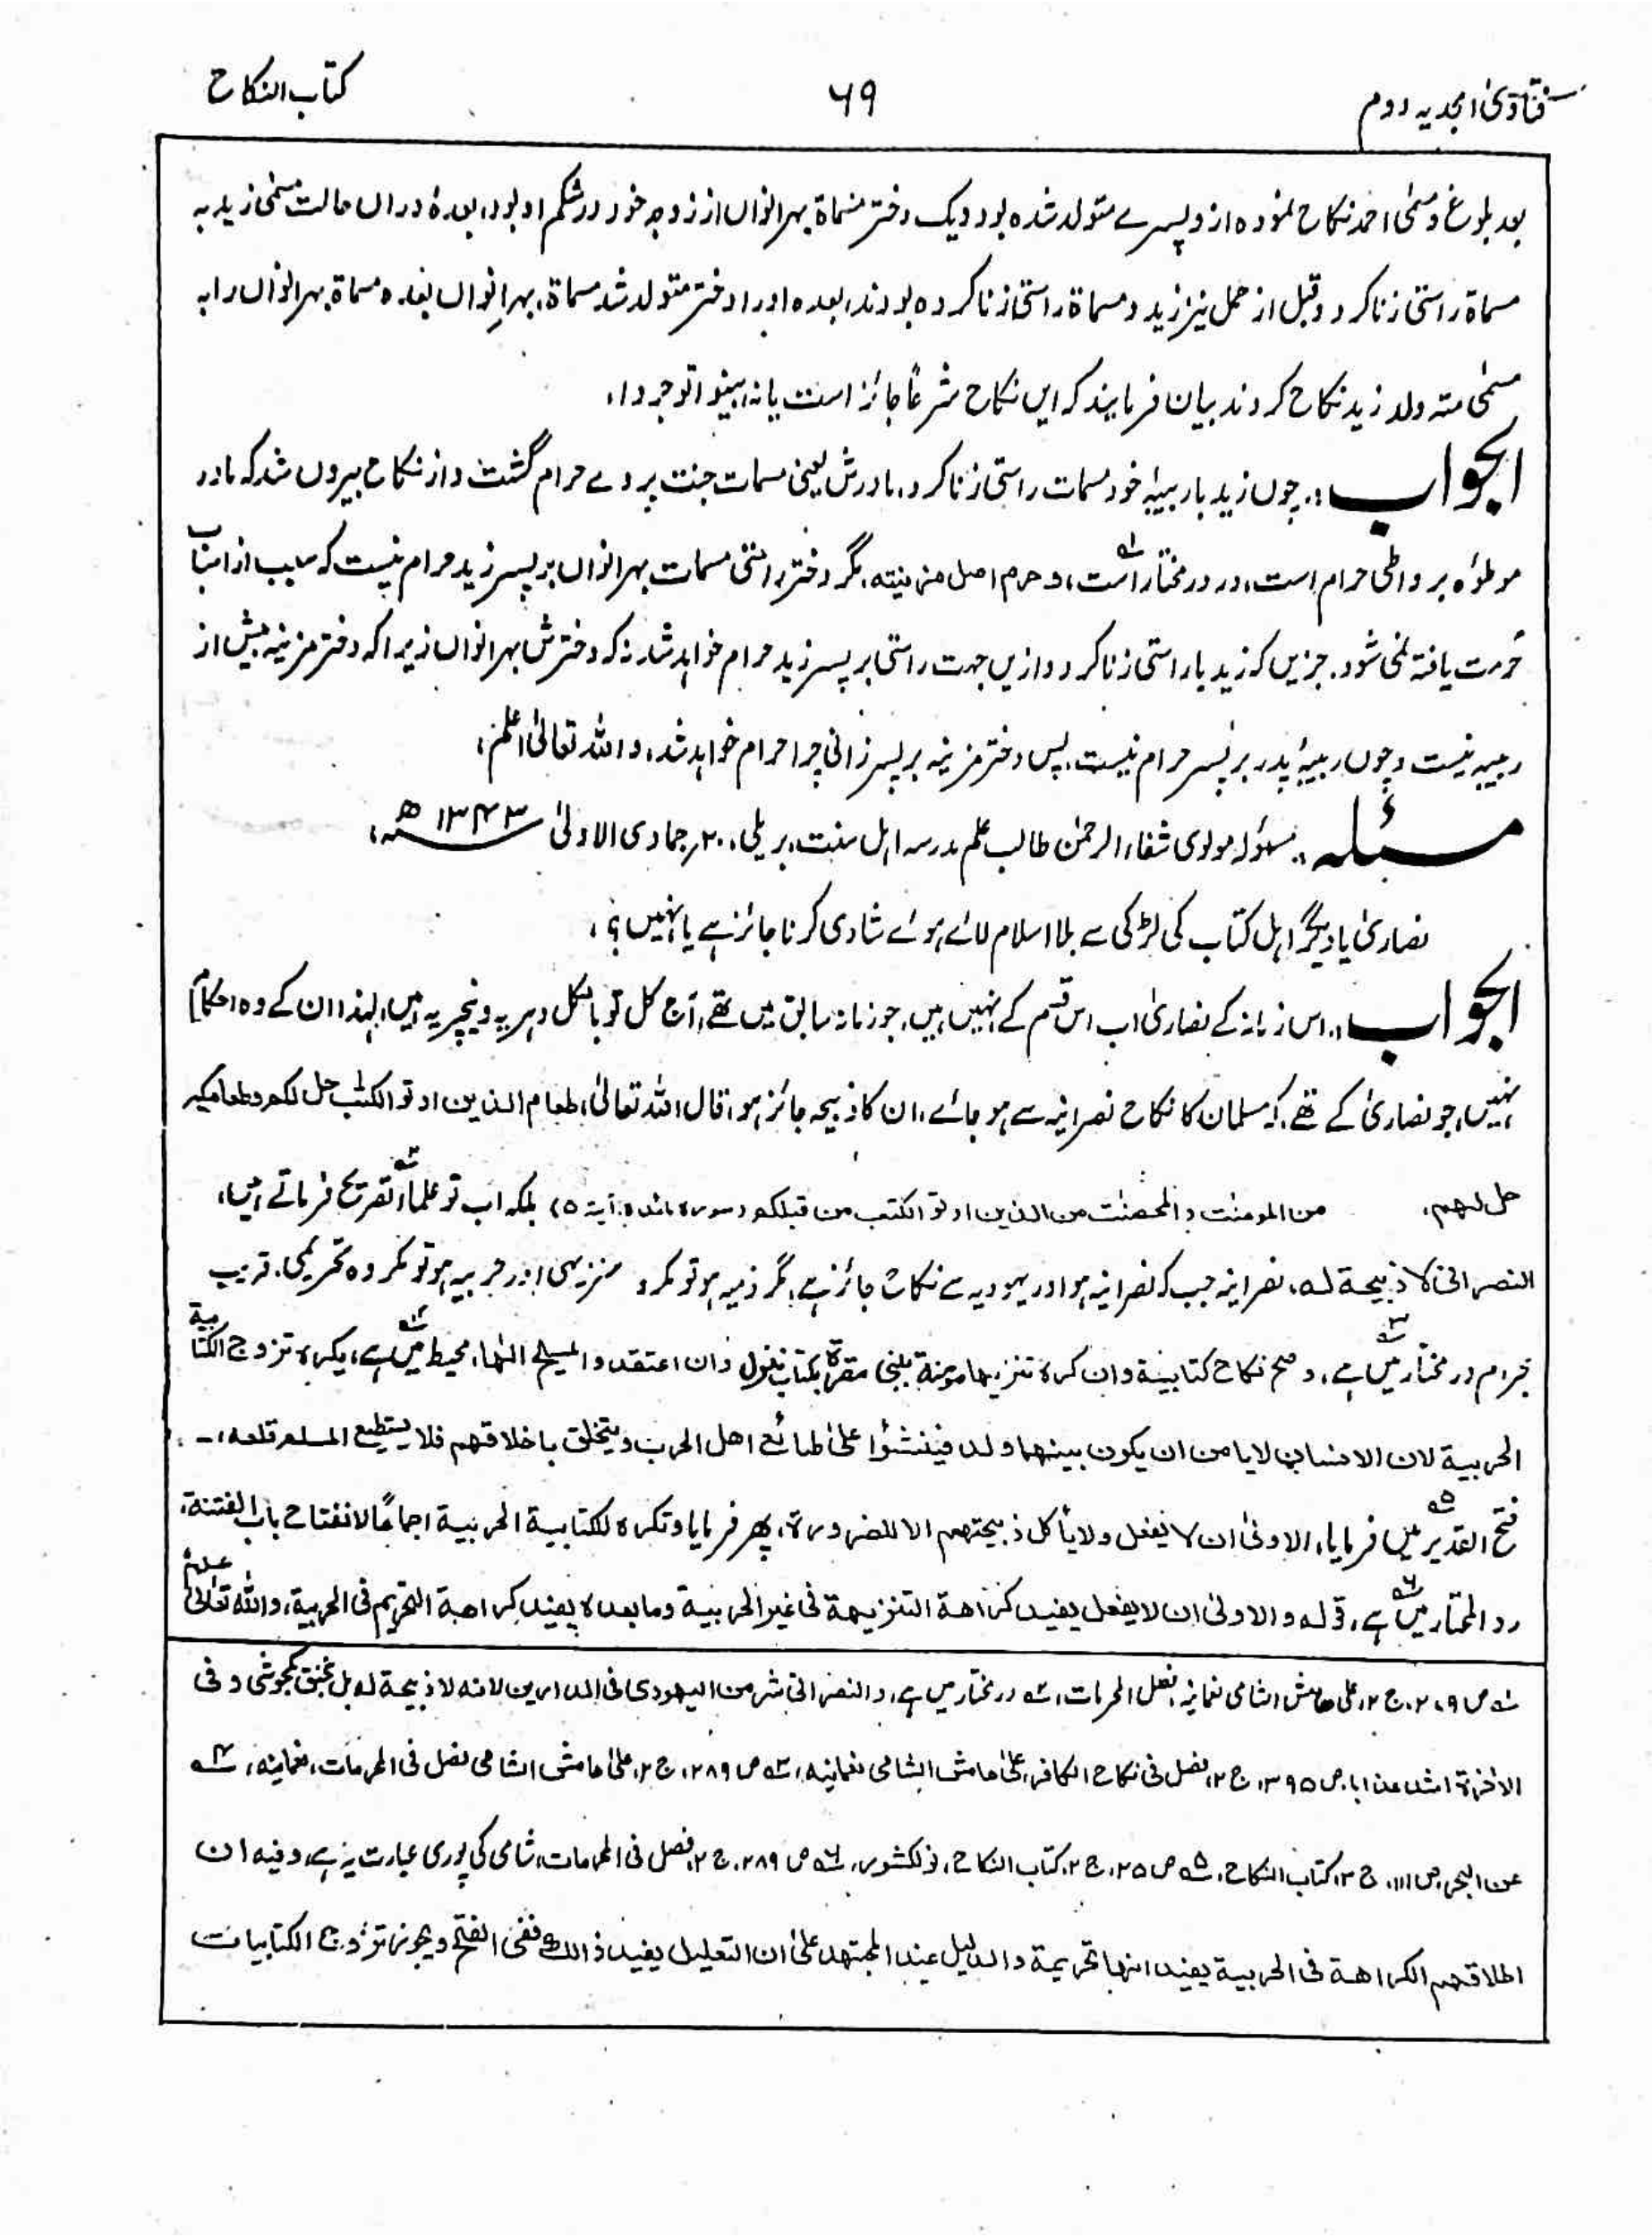 فتاویٰ امجدیہ دوم ۶۹ کتاب النکاح
بعد بلوغ و مسمٰی احمد نکاح نمودہ از و پسرے متولد شدہ بود و یک دختر مسماۃ بہرانواں از زوجہ خود در شکم او بود، بعدہٗ دراں حالت مسمٰی زید بہ
مسماۃ راستی زنا کرد و قبل از حمل نیز زید و مسماۃ راستی زنا کردہ بودند، بعدہ او را دختر متولد شد مسماۃ، بہرانواں بعدہ مسماۃ بہرانواں را بہ
مسمٰی متہ ولد زید نکاح کردند بیان فرمایند کہ ایں نکاح شرعًا جائز است یا نہ، بینوا توجروا،
الجواب :۔ چوں زید با ربیبۂ خود مسمات راستی زنا کرد، مادرش یعنی مسمات جنت بروے حرام گشت و از نکاح بیروں شد کہ مادر
موطؤہ بر واطی حرام است، در در مختار است، وحرم اصل مزنیتہ، مگر دختر راستی مسمات بہرانواں بر پسر زید حرام نیست کہ سبب از اسباب
حرمت یافتہ نمی شود، جز یں کہ زید با راستی زنا کرد و ازیں جہت راستی بر پسر زید حرام خواہد شد، نہ کہ دخترش بہرانواں زیرا کہ دختر مزنیہ بیش از
ربیبہ نیست و چوں ربیبۂ پدر بر پسر حرام نیست، پس دختر مزنیہ بر پسر زانی چرا حرام خواہد شد، واللہ تعالیٰ اعلم،
مسئلہ :۔ مسؤلہ مولوی شفاء الرحمٰن طالب علم مدرسہ اہل سنت، بریلی، ۲۰ جمادی الاولیٰ ۱۳۴۳ھ،
نصاریٰ یا دیگر اہل کتاب کی لڑکی سے بلا اسلام لائے ہوئے شادی کرنا جائز ہے یا نہیں؟،
الجواب :۔ اس زمانہ کے نصاریٰ اب اس قسم کے نہیں ہیں، جو زمانہ سابق میں تھے، آج کل تو بالکل دہریہ و نیچریہ ہیں، لہٰذا ان کے وہ احکام
نہیں، جو نصاریٰ کے تھے، کہ مسلمان کا نکاح نصرانیہ سے ہو جائے، ان کا ذبیحہ جائز ہو، قال اللہ تعالیٰ، طعام الذین اوتوا الکتٰب حل لکم وطعامکم
حل لہم، من المومنٰت والمحصنٰت من الذین اوتوا الکتٰب من قبلکم (سورۃ مائدہ، آیۃ ۵) بلکہ اب تو علماء تصریح فرماتے ہیں،
النصرانی لا ذبیحۃ لہ، نصرانیہ جب کہ نصرانیہ ہو اور یہودیہ سے نکاح جائز ہے، مگر ذمیہ ہو تو مکروہ تنزیہی اور حربیہ ہو تو مکروہ تحریمی، قریب
بحرام در مختار میں ہے، وصح نکاح کتابیۃ وان کرہ تنزیہا مومنۃ بنبی مقرۃ بکتاب منزل وان اعتقدوا المسیح الٰہا، محیط میں ہے، یکرہ تزوج الکتابیۃ
الحربیۃ لان الانسان لا یامن ان یکون بینہما ولد فینشؤا علیٰ طبائع اھل الحرب ویتخلق باخلاقہم فلا یستطیع المسلم قلعہ،۔
فتح القدیر میں فرمایا، الاولیٰ ان لا یفعل ولا یأکل ذبیحتہم الا للضرورۃ، پھر فرمایا وتکرہ للکتابیۃ الحربیۃ اجماعًا لانفتاح باب الفتنۃ،
رد المحتار میں ہے، قولہ والاولیٰ ان لا یفعل یفید کراھۃ التنزیہۃ فی غیر الحربیۃ وما بعدہ یفید کراھۃ التحریم فی الحربیۃ، واللہ تعالیٰ علم
۱؎ ص ۲۰۹، ج ۲، علی ھامش الشامی نعمانیہ، فصل المحرمات، ۲؎ در مختار میں ہے، والنصرانی شر من الیہودی فی الدارین لانہ لا ذبیحۃ لہ بل یخنق کمجوسی وفی
الاٰخرۃ اشد عذابا، ص ۳۹۵، ج ۲، فصل فی نکاح الکافر، علیٰ ھامش الشامی نعمانیہ، ۳؎ ص ۲۸۹، ج ۲، علیٰ ھامش الشامی فصل فی المحرمات، نعمانیہ، ۴؎
عن البحر، ص ۱۱۱، ج ۳، کتاب النکاح، ۵؎ ص ۲۵، ج ۲، کتاب النکاح، نولکشور، ۶؎ ص ۲۸۹، ج ۲، فصل فی المحرمات، شامی کی پوری عبارت یہ ہے، وفیہ ان
اطلاقہم الکراھۃ فی الحربیۃ یفید انہا تحریمۃ والدلیل عند المجتہد علیٰ ان التعلیل یفید ذالک ففی الفتح ویجوز تزوج الکتابیات